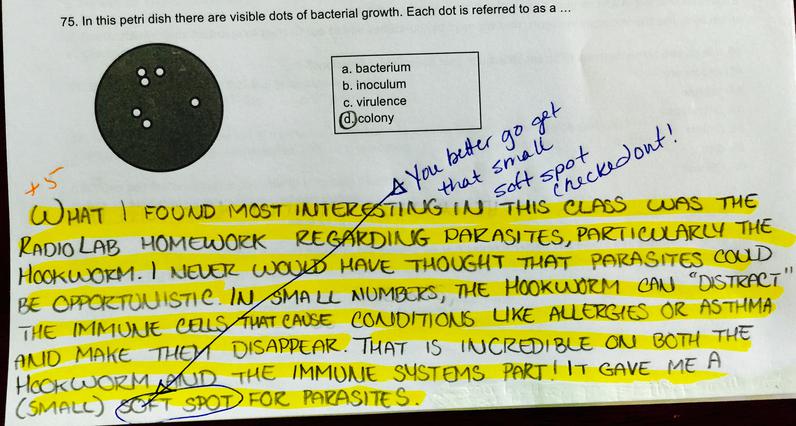 75. In this petri dish there are visible dots of bacterial growth. Each dot is referred to as a ...
a. bacterium
b. inoculum
c. virulence
d. colony
You better go get
that small
soft spot
checked out!
+5
WHAT I FOUND MOST INTERESTING IN THIS CLASS WAS THE
RADIO LAB HOMEWORK REGARDING PARASITES, PARTICULARLY THE
HOOKWORM. I NEVER WOULD HAVE THOUGHT THAT PARASITES COULD
BE OPPORTUNISTIC. IN SMALL NUMBERS, THE HOOKWORM CAN "DISTRACT"
THE IMMUNE CELLS THAT CAUSE CONDITIONS LIKE ALLERGIES OR ASTHMA
AND MAKE THEM DISAPPEAR. THAT IS INCREDIBLE ON BOTH THE
HOOKWORM AND THE IMMUNE SYSTEMS PART! IT GAVE ME A
(SMALL) SOFT SPOT FOR PARASITES.